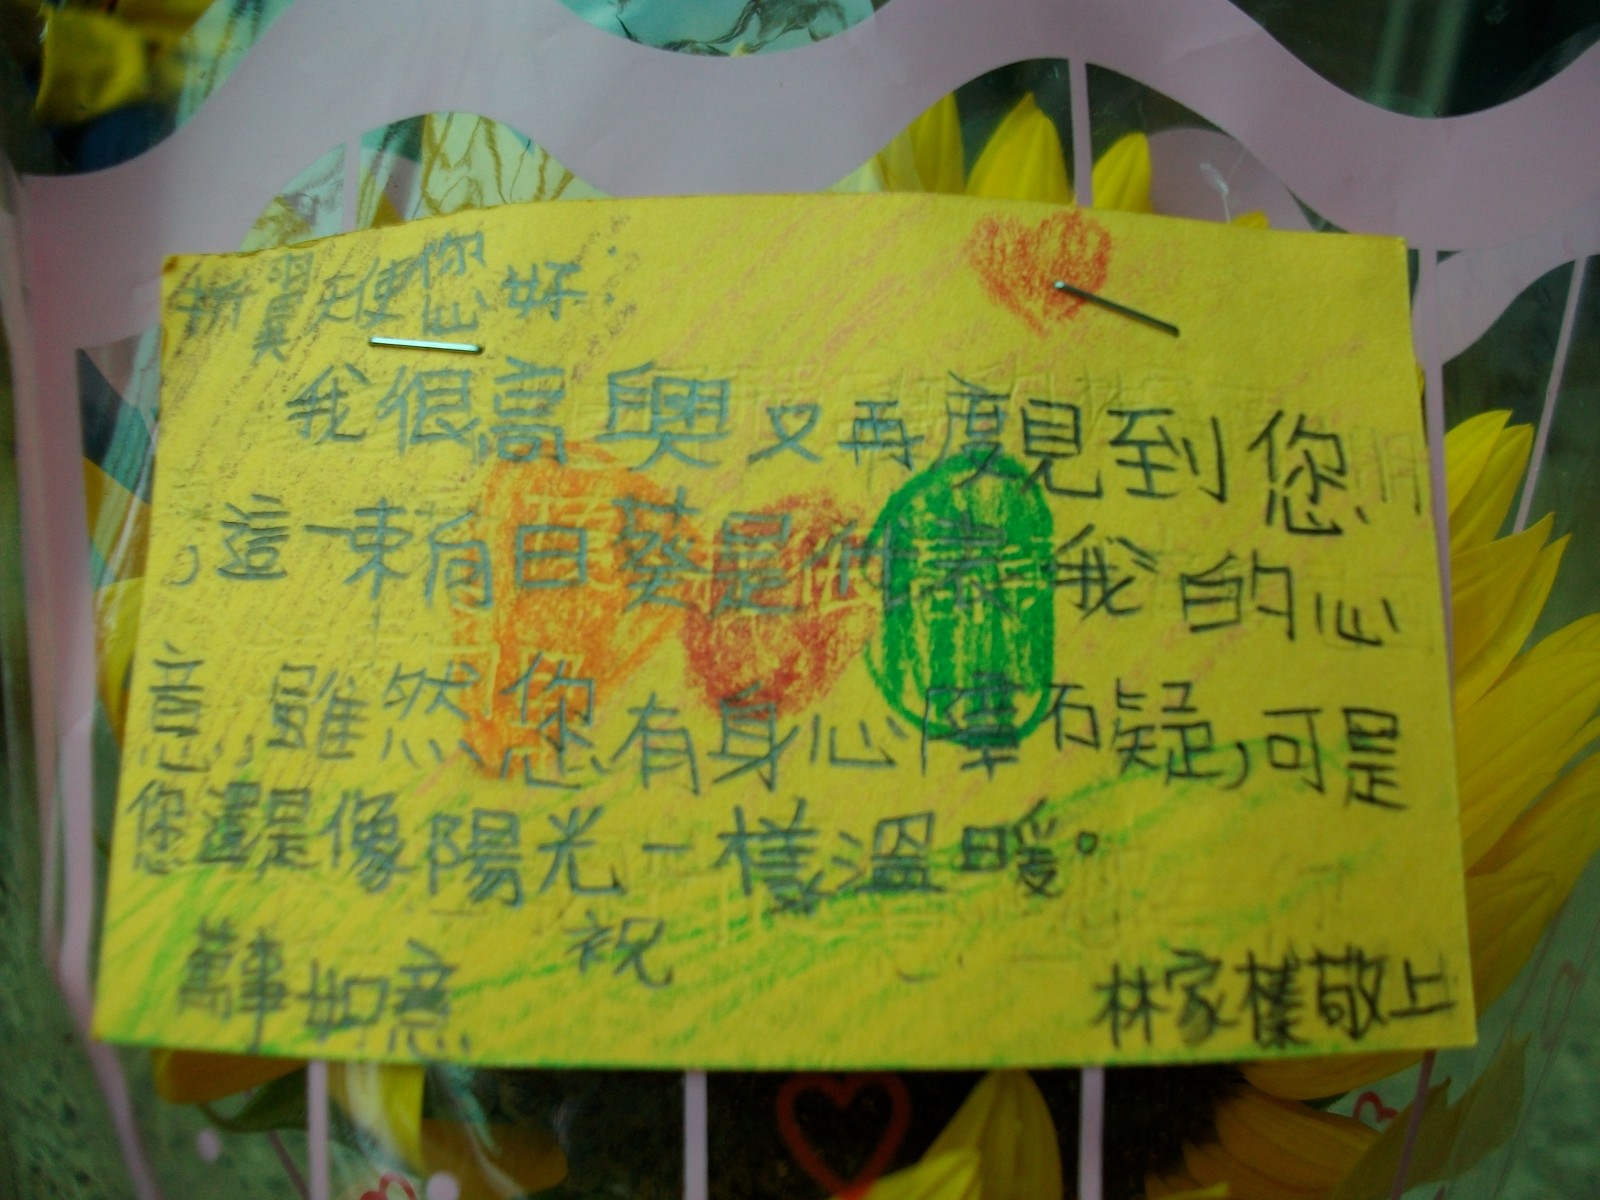 折翼天使您好:
我很高興又再度見到您
,這一束向日葵是代表我的心
意,雖然您有身心障礙,可是
您還是像陽光一樣溫暖。
祝
萬事如意
林家榛敬上